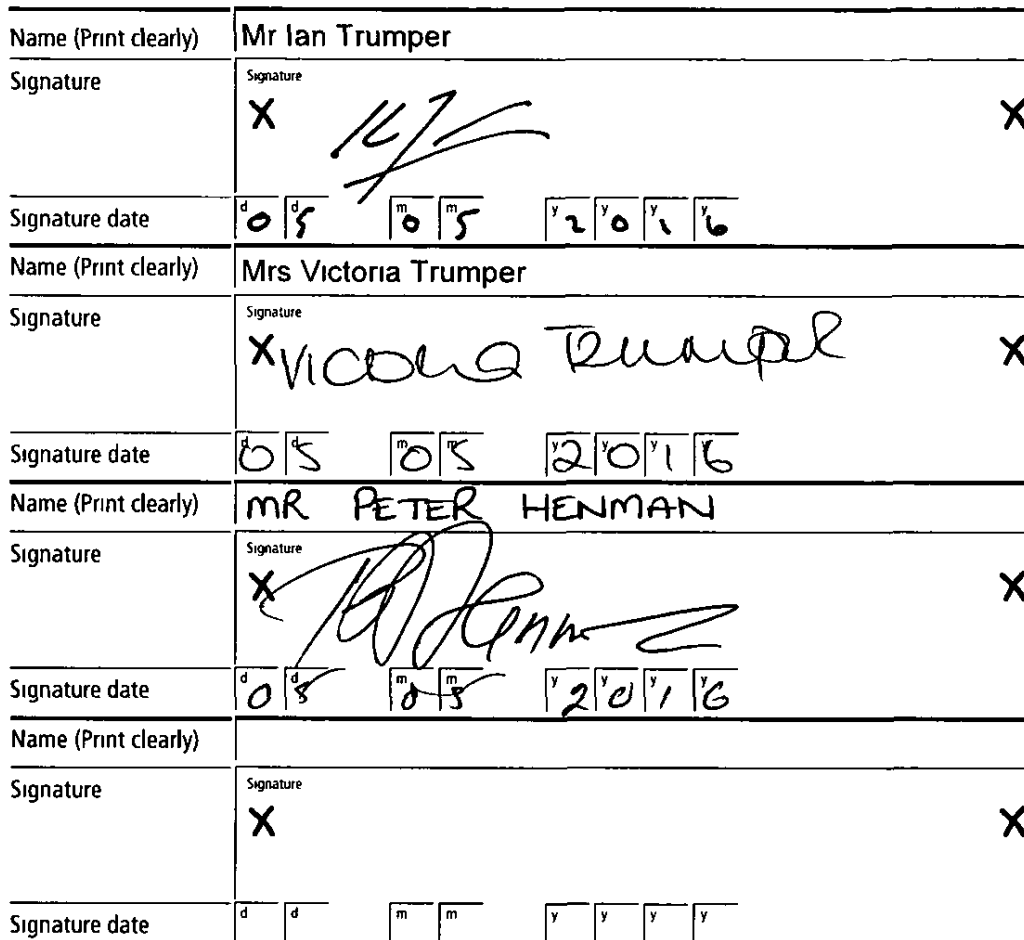 Name (Print clearly) Mr Ian Trumper
Signature Signature
X X
Signature date d d m m y y y y
05 05 2016
Name (Print clearly) Mrs Victoria Trumper
Signature Signature
X Victoria Trumper X
Signature date d d m m y y y y
05 05 2016
Name (Print clearly) MR PETER HENMAN
Signature Signature
X X
Signature date d d m m y y y y
05 05 2016
Name (Print clearly)
Signature Signature
X X
Signature date d d m m y y y y